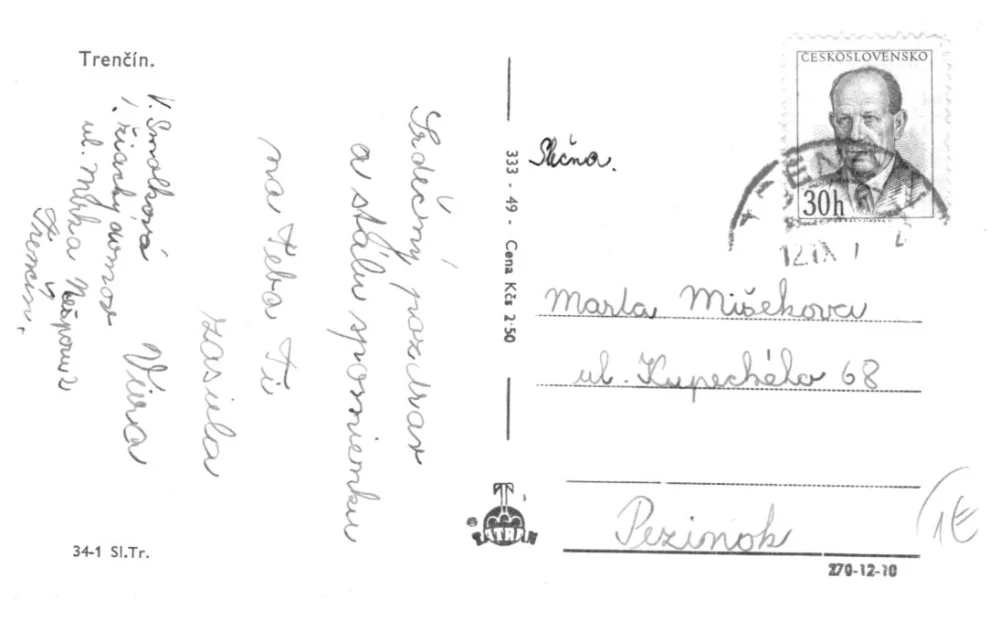 Trenčín.
V. Smolková
1. žiacky domov
ul. Marka Nešporu 2
Trenčín.
Srdečný pozdrav
a stálu spomienku
na Teba Ti
zasiela
Viera
34-1 Sl.Tr.
333 - 49 - Cena Kčs 2·50
TATRAN
ČESKOSLOVENSKO
30h
12.IX
Slečna.
Marta Mišekova
ul. Kupeckého 68
Pezinok
1€
270-12-10